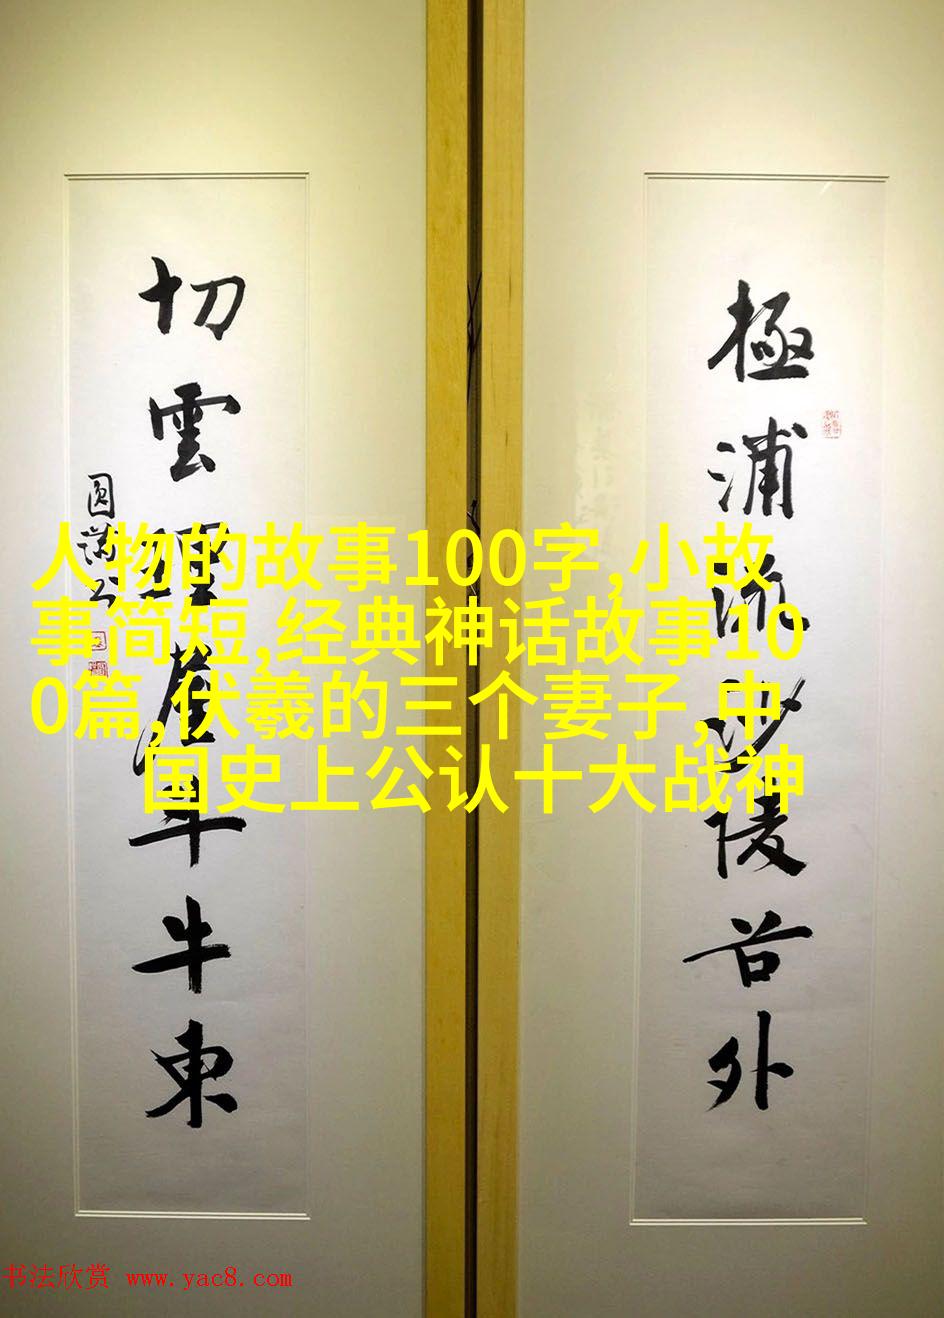 極浦流沙陵谷外
切雲崖牛東
人物的故事100字,小故
事简短,经典神话故事10
0篇,伏羲的三个妻子,中
国史上公认十大战神
书法欣赏 www.yac8.com